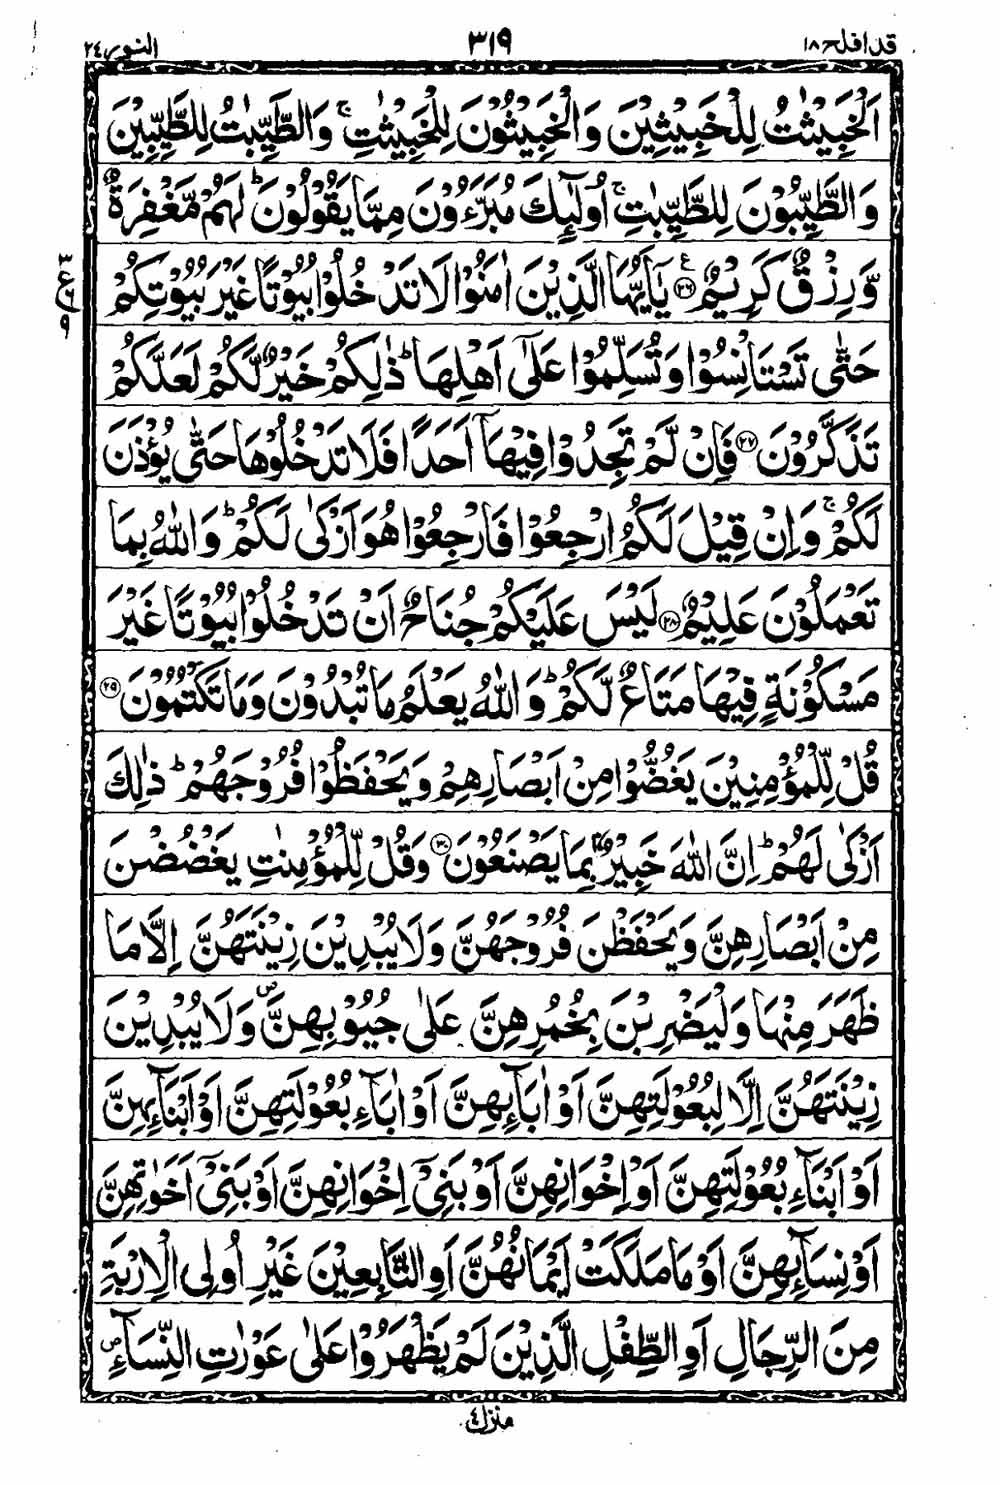 قد افلح ۱۸ ۳۱۹ النور ۲۴
اَلْخَبِيْثٰتُ لِلْخَبِيْثِيْنَ وَالْخَبِيْثُوْنَ لِلْخَبِيْثٰتِ ۚ وَالطَّيِّبٰتُ لِلطَّيِّبِيْنَ
وَالطَّيِّبُوْنَ لِلطَّيِّبٰتِ ۚ اُولٰٓئِكَ مُبَرَّءُوْنَ مِمَّا يَقُوْلُوْنَ ؕ لَهُمْ مَّغْفِرَةٌ
وَّرِزْقٌ كَرِيْمٌ ۲۶ ع يٰۤاَيُّهَا الَّذِيْنَ اٰمَنُوْا لَا تَدْخُلُوْا بُيُوْتًا غَيْرَ بُيُوْتِكُمْ
حَتّٰى تَسْتَاْنِسُوْا وَتُسَلِّمُوْا عَلٰٓى اَهْلِهَا ؕ ذٰلِكُمْ خَيْرٌ لَّكُمْ لَعَلَّكُمْ
تَذَكَّرُوْنَ ۲۷ فَاِنْ لَّمْ تَجِدُوْا فِيْهَاۤ اَحَدًا فَلَا تَدْخُلُوْهَا حَتّٰى يُؤْذَنَ
لَكُمْ ۚ وَاِنْ قِيْلَ لَكُمُ ارْجِعُوْا فَارْجِعُوْا هُوَ اَزْكٰى لَكُمْ ؕ وَاللّٰهُ بِمَا
تَعْمَلُوْنَ عَلِيْمٌ ۲۸ لَيْسَ عَلَيْكُمْ جُنَاحٌ اَنْ تَدْخُلُوْا بُيُوْتًا غَيْرَ
مَسْكُوْنَةٍ فِيْهَا مَتَاعٌ لَّكُمْ ؕ وَاللّٰهُ يَعْلَمُ مَا تُبْدُوْنَ وَمَا تَكْتُمُوْنَ ۲۹
قُلْ لِّلْمُؤْمِنِيْنَ يَغُضُّوْا مِنْ اَبْصَارِهِمْ وَيَحْفَظُوْا فُرُوْجَهُمْ ؕ ذٰلِكَ
اَزْكٰى لَهُمْ ؕ اِنَّ اللّٰهَ خَبِيْرٌۢ بِمَا يَصْنَعُوْنَ ۳۰ وَقُلْ لِّلْمُؤْمِنٰتِ يَغْضُضْنَ
مِنْ اَبْصَارِهِنَّ وَيَحْفَظْنَ فُرُوْجَهُنَّ وَلَا يُبْدِيْنَ زِيْنَتَهُنَّ اِلَّا مَا
ظَهَرَ مِنْهَا وَلْيَضْرِبْنَ بِخُمُرِهِنَّ عَلٰى جُيُوْبِهِنَّ ۪ وَلَا يُبْدِيْنَ
زِيْنَتَهُنَّ اِلَّا لِبُعُوْلَتِهِنَّ اَوْ اٰبَآئِهِنَّ اَوْ اٰبَآءِ بُعُوْلَتِهِنَّ اَوْ اَبْنَآئِهِنَّ
اَوْ اَبْنَآءِ بُعُوْلَتِهِنَّ اَوْ اِخْوَانِهِنَّ اَوْ بَنِيْۤ اِخْوَانِهِنَّ اَوْ بَنِيْۤ اَخَوٰتِهِنَّ
اَوْ نِسَآئِهِنَّ اَوْ مَا مَلَكَتْ اَيْمَانُهُنَّ اَوِ التّٰبِعِيْنَ غَيْرِ اُولِى الْاِرْبَةِ
مِنَ الرِّجَالِ اَوِ الطِّفْلِ الَّذِيْنَ لَمْ يَظْهَرُوْا عَلٰى عَوْرٰتِ النِّسَآءِ ۪
منزل ۴